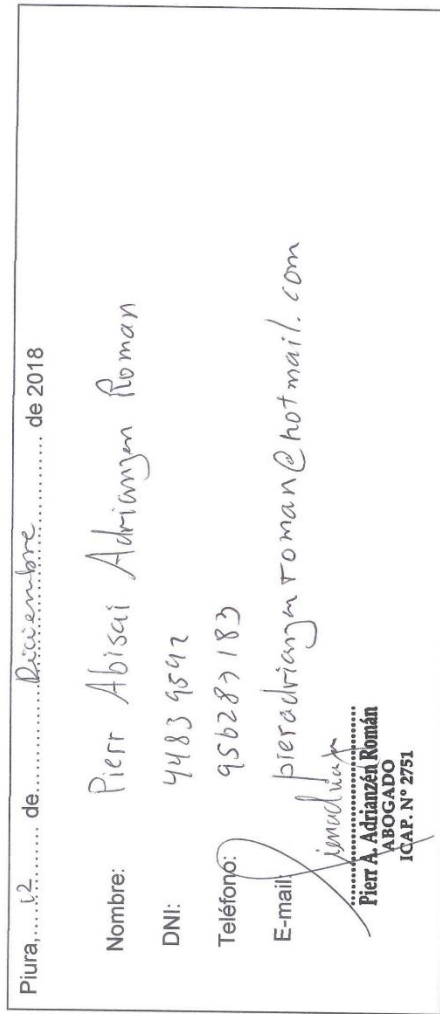 Piura,....12........ de...............Diciembre................... de 2018
Nombre: Pierr Abisai Adrianzen Roman
DNI: 44839592
Teléfono: 956287183
E-mail: pieradrianzenroman@hotmail.com
Pierr A. Adrianzén Román
ABOGADO
ICAP. N° 2751